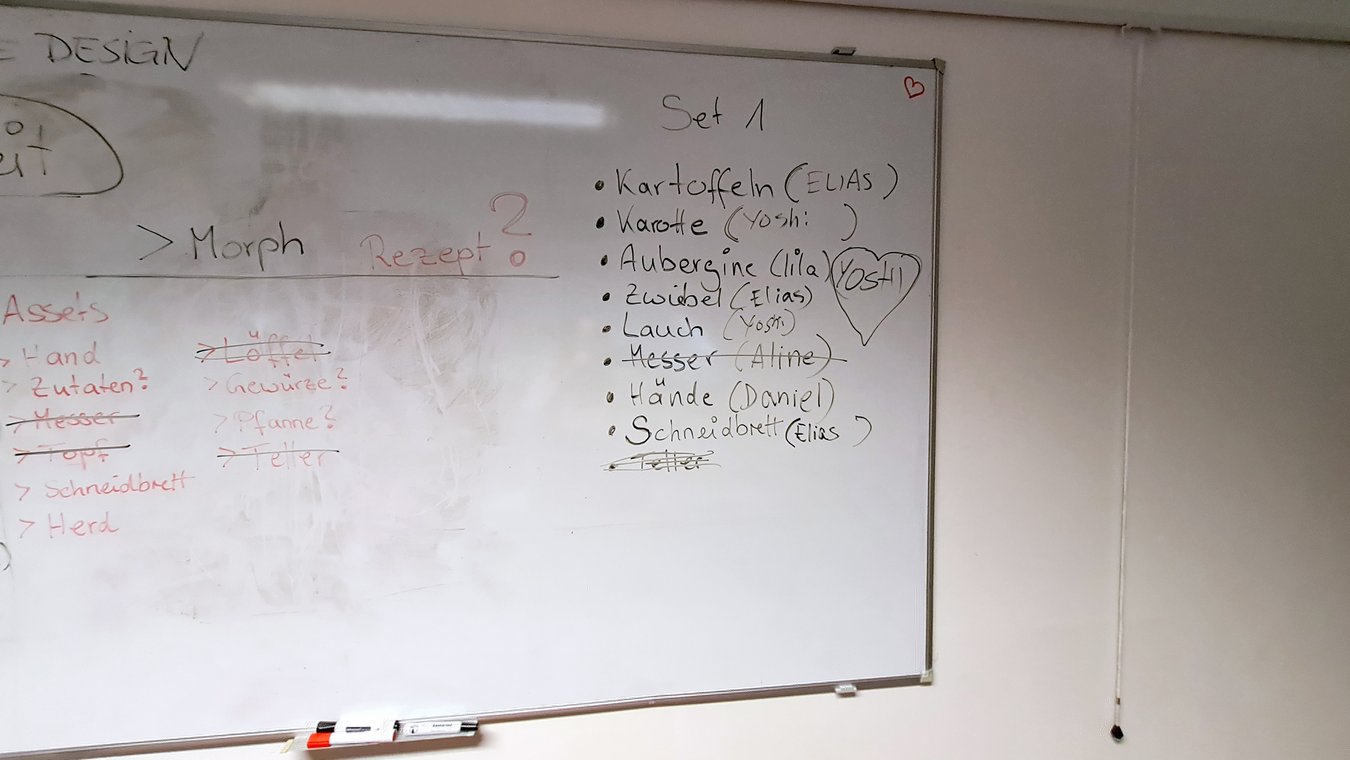 DESIGN
> Morph Rezept?
Assets
> Hand
> Zutaten?
> Messer
> Topf
> Schneidbrett
> Herd
> Löffel
> Gewürze?
> Pfanne?
> Teller
Set 1
• Kartoffeln (ELIAS)
• Karotte (Yoshi)
• Aubergine (lila)
YOSHI
• Zwiebel (Elias)
• Lauch (Yoshi)
• Messer (Aline)
• Hände (Daniel)
• Schneidbrett (Elias)
• Teller